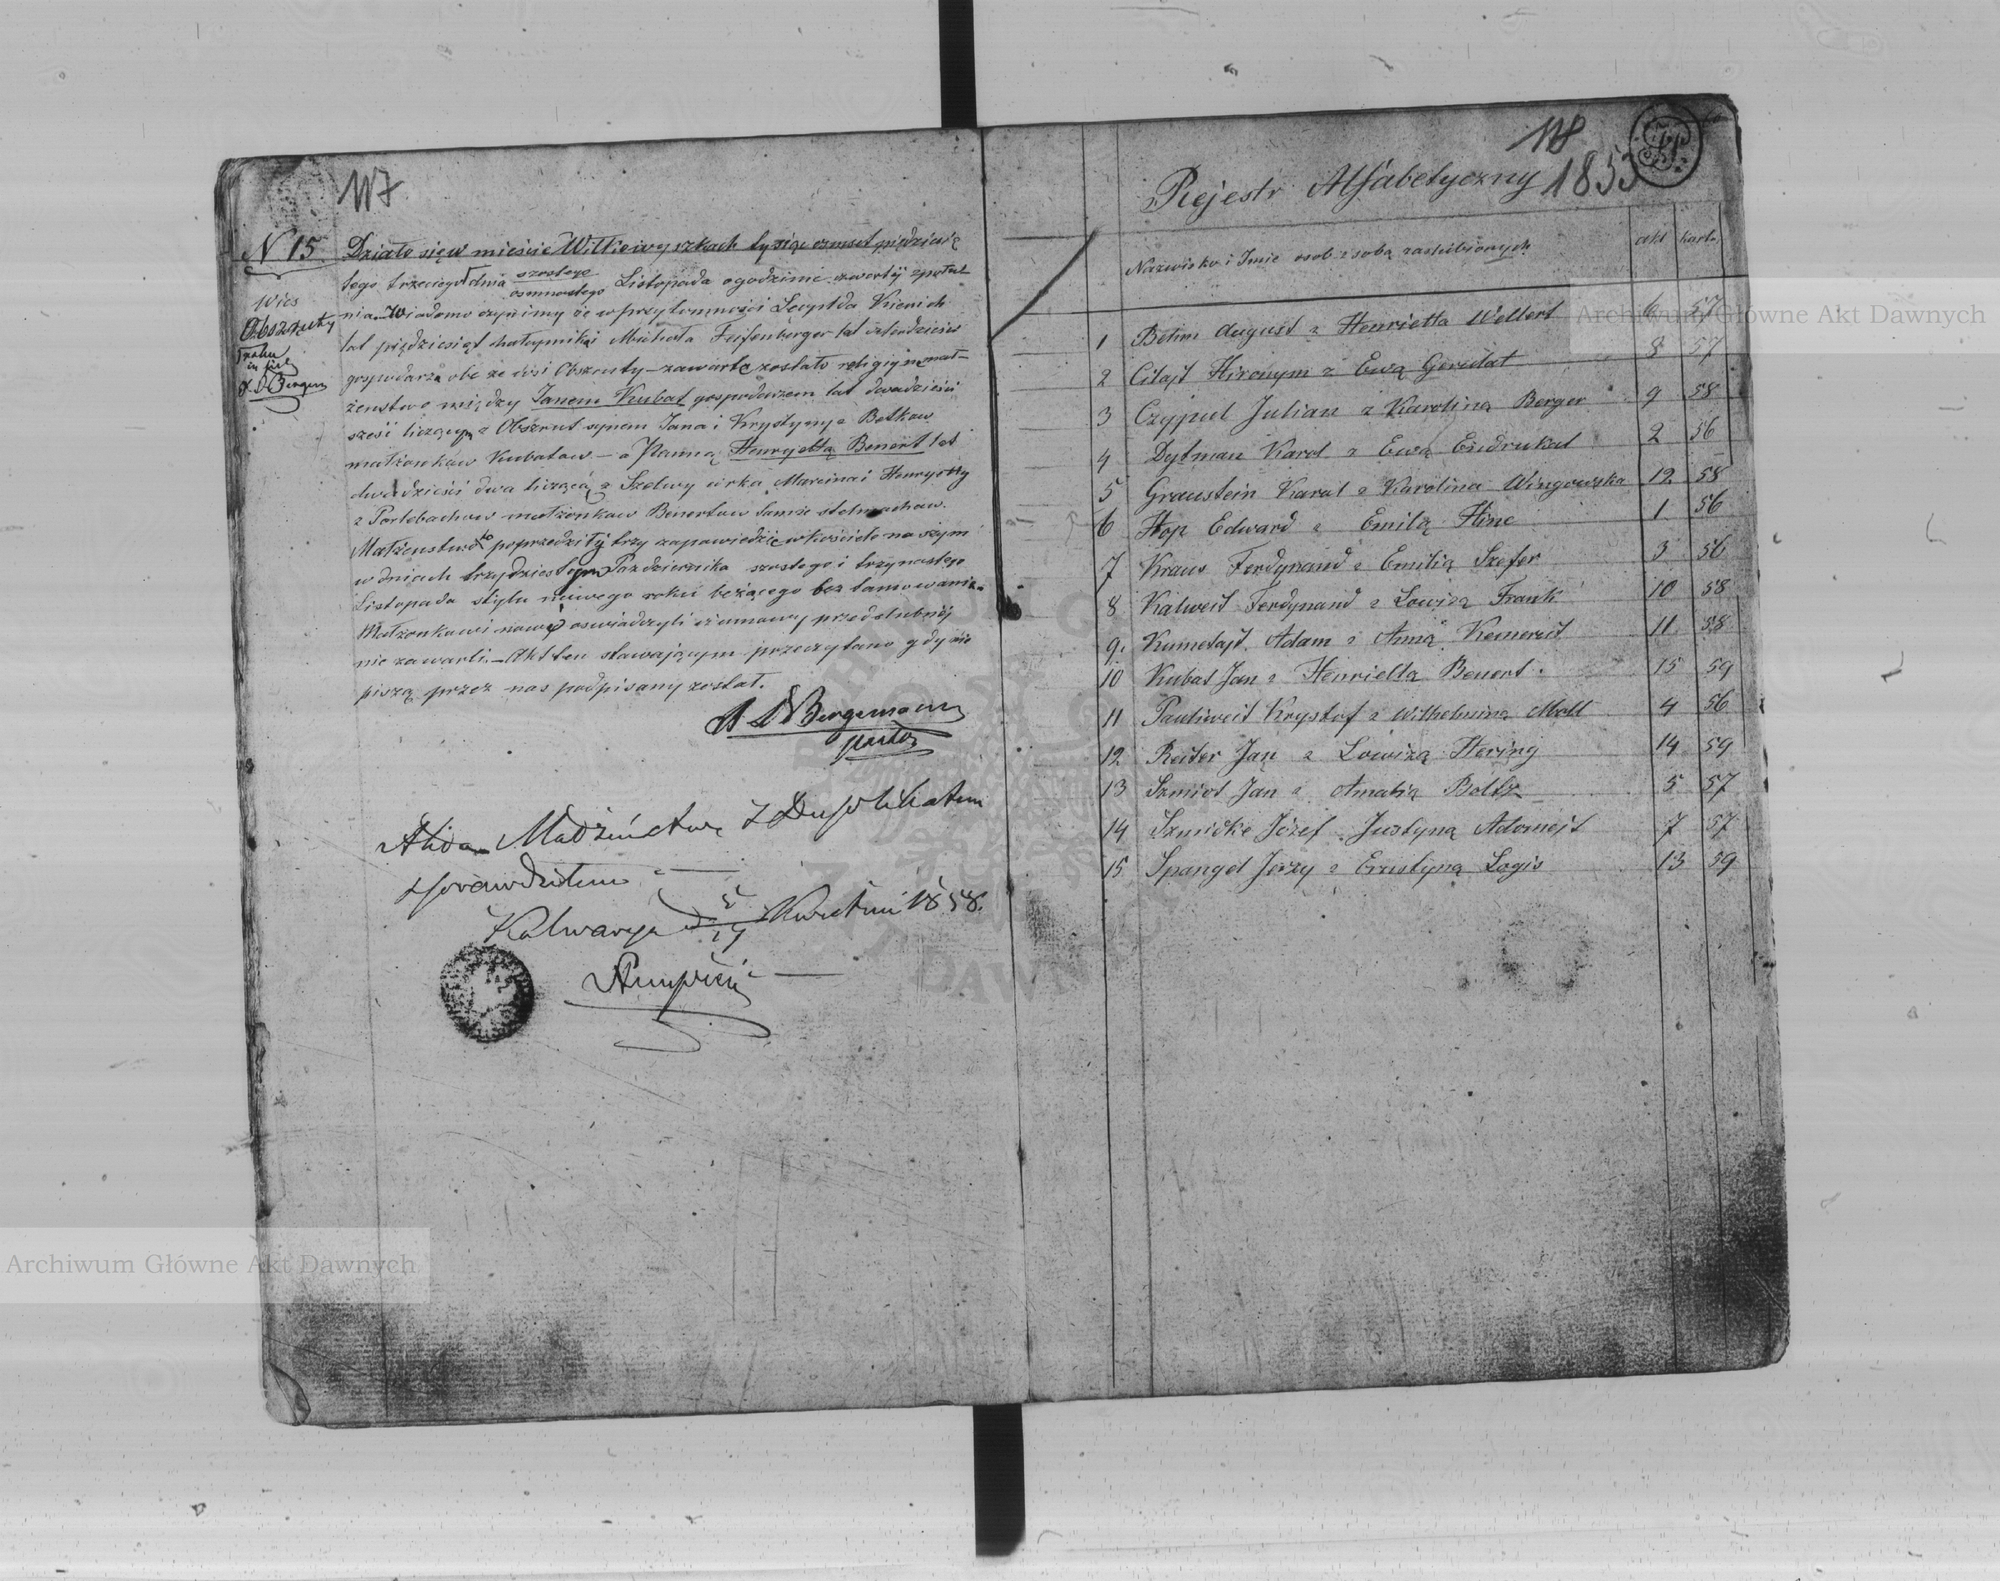 117
N 15
Wieś
Obszruty
A. D Bergem
Działo się w mieście Wiłkowyszkach tysiąc osmset pięćdziesią
tego trzeciego dnia szóstego osmnastego Listopada o godzinie czwartéj z połud
nia. Wiadomo czynimy że w przytomności
lat pięćdziesiąt chałupnika i Michała Fejfenberger lat czterdzieście
gospodarza obu ze wsi Obszruty – zawarte zostało religijne mał–
żeństwo między Janem Kubat gospodarzem lat dwadzieścia
sześć liczącym z Obszrut synem Jana i Krystyny z Betkow
małżonków Kubatow – a Panną Henryettą Benert lat
dwadzieścia dwa liczącą z Szelwy córka Marcina i Henryetty
z Portobachow małżonkow Benertow tamże stelmachow.
Małżeństwo to poprzedziły trzy zapowiedzie w kościele naszym
w dniach trzydziestym Pazdziernika szostego i trzynastego
Listopada stylu nowego roku bieżącego bez tamowania.
Małżonkowie nowi oswiadczyli iż umowy przedślubnéj
nie zawarli. – Akt ten stawającym przeczytano gdy nie
piszą przez nas podpisany został.
A D Bergemann
pastor
Akta Małżeństwa z Duplikatem
sprawdziłem
Kalwarya d 5/17 Kwietnia 1858.
118
Rejestr Alfabetyczny 1853
Nazwisko i Imie osob z sobą zaslubionych akt karta
1 Böhm August z Henrietta Wellert 6 57
2 Citajt Hironym z Ewą Gerulat 8 57
3 Czyjpul Julian z Karoliną Berger 9 58
4 Dytman Karol z Ewą Endrukat 2 56
5 Graustein Karol z Karolina Wingowska 12 58
6 Hop Edward z Emilą Hinc 1 56
7 Kraus Ferdynand z Emilią Szefer 3 56
8 Kalweit Ferdynand z Lowizą Frank 10 58
9. Kumetajt Adam z Anną Kemereit 11 58
10 Kubat Jan z Henriettą Benert. 15 59
11 Pauliweit Krystof z Wilhelminą Moll 4 56
12 Reiter Jan z Lowizą Hering 14 59
13 Szmidt Jan z Amalią Boltz 5 57
14 Szmidke Józef Justyną Adomejt 7 57
15 Spangel Jerzy z Ernstyną Logis 13 59
Archiwum Główne Akt Dawnych
Archiwum Główne Akt Dawnych